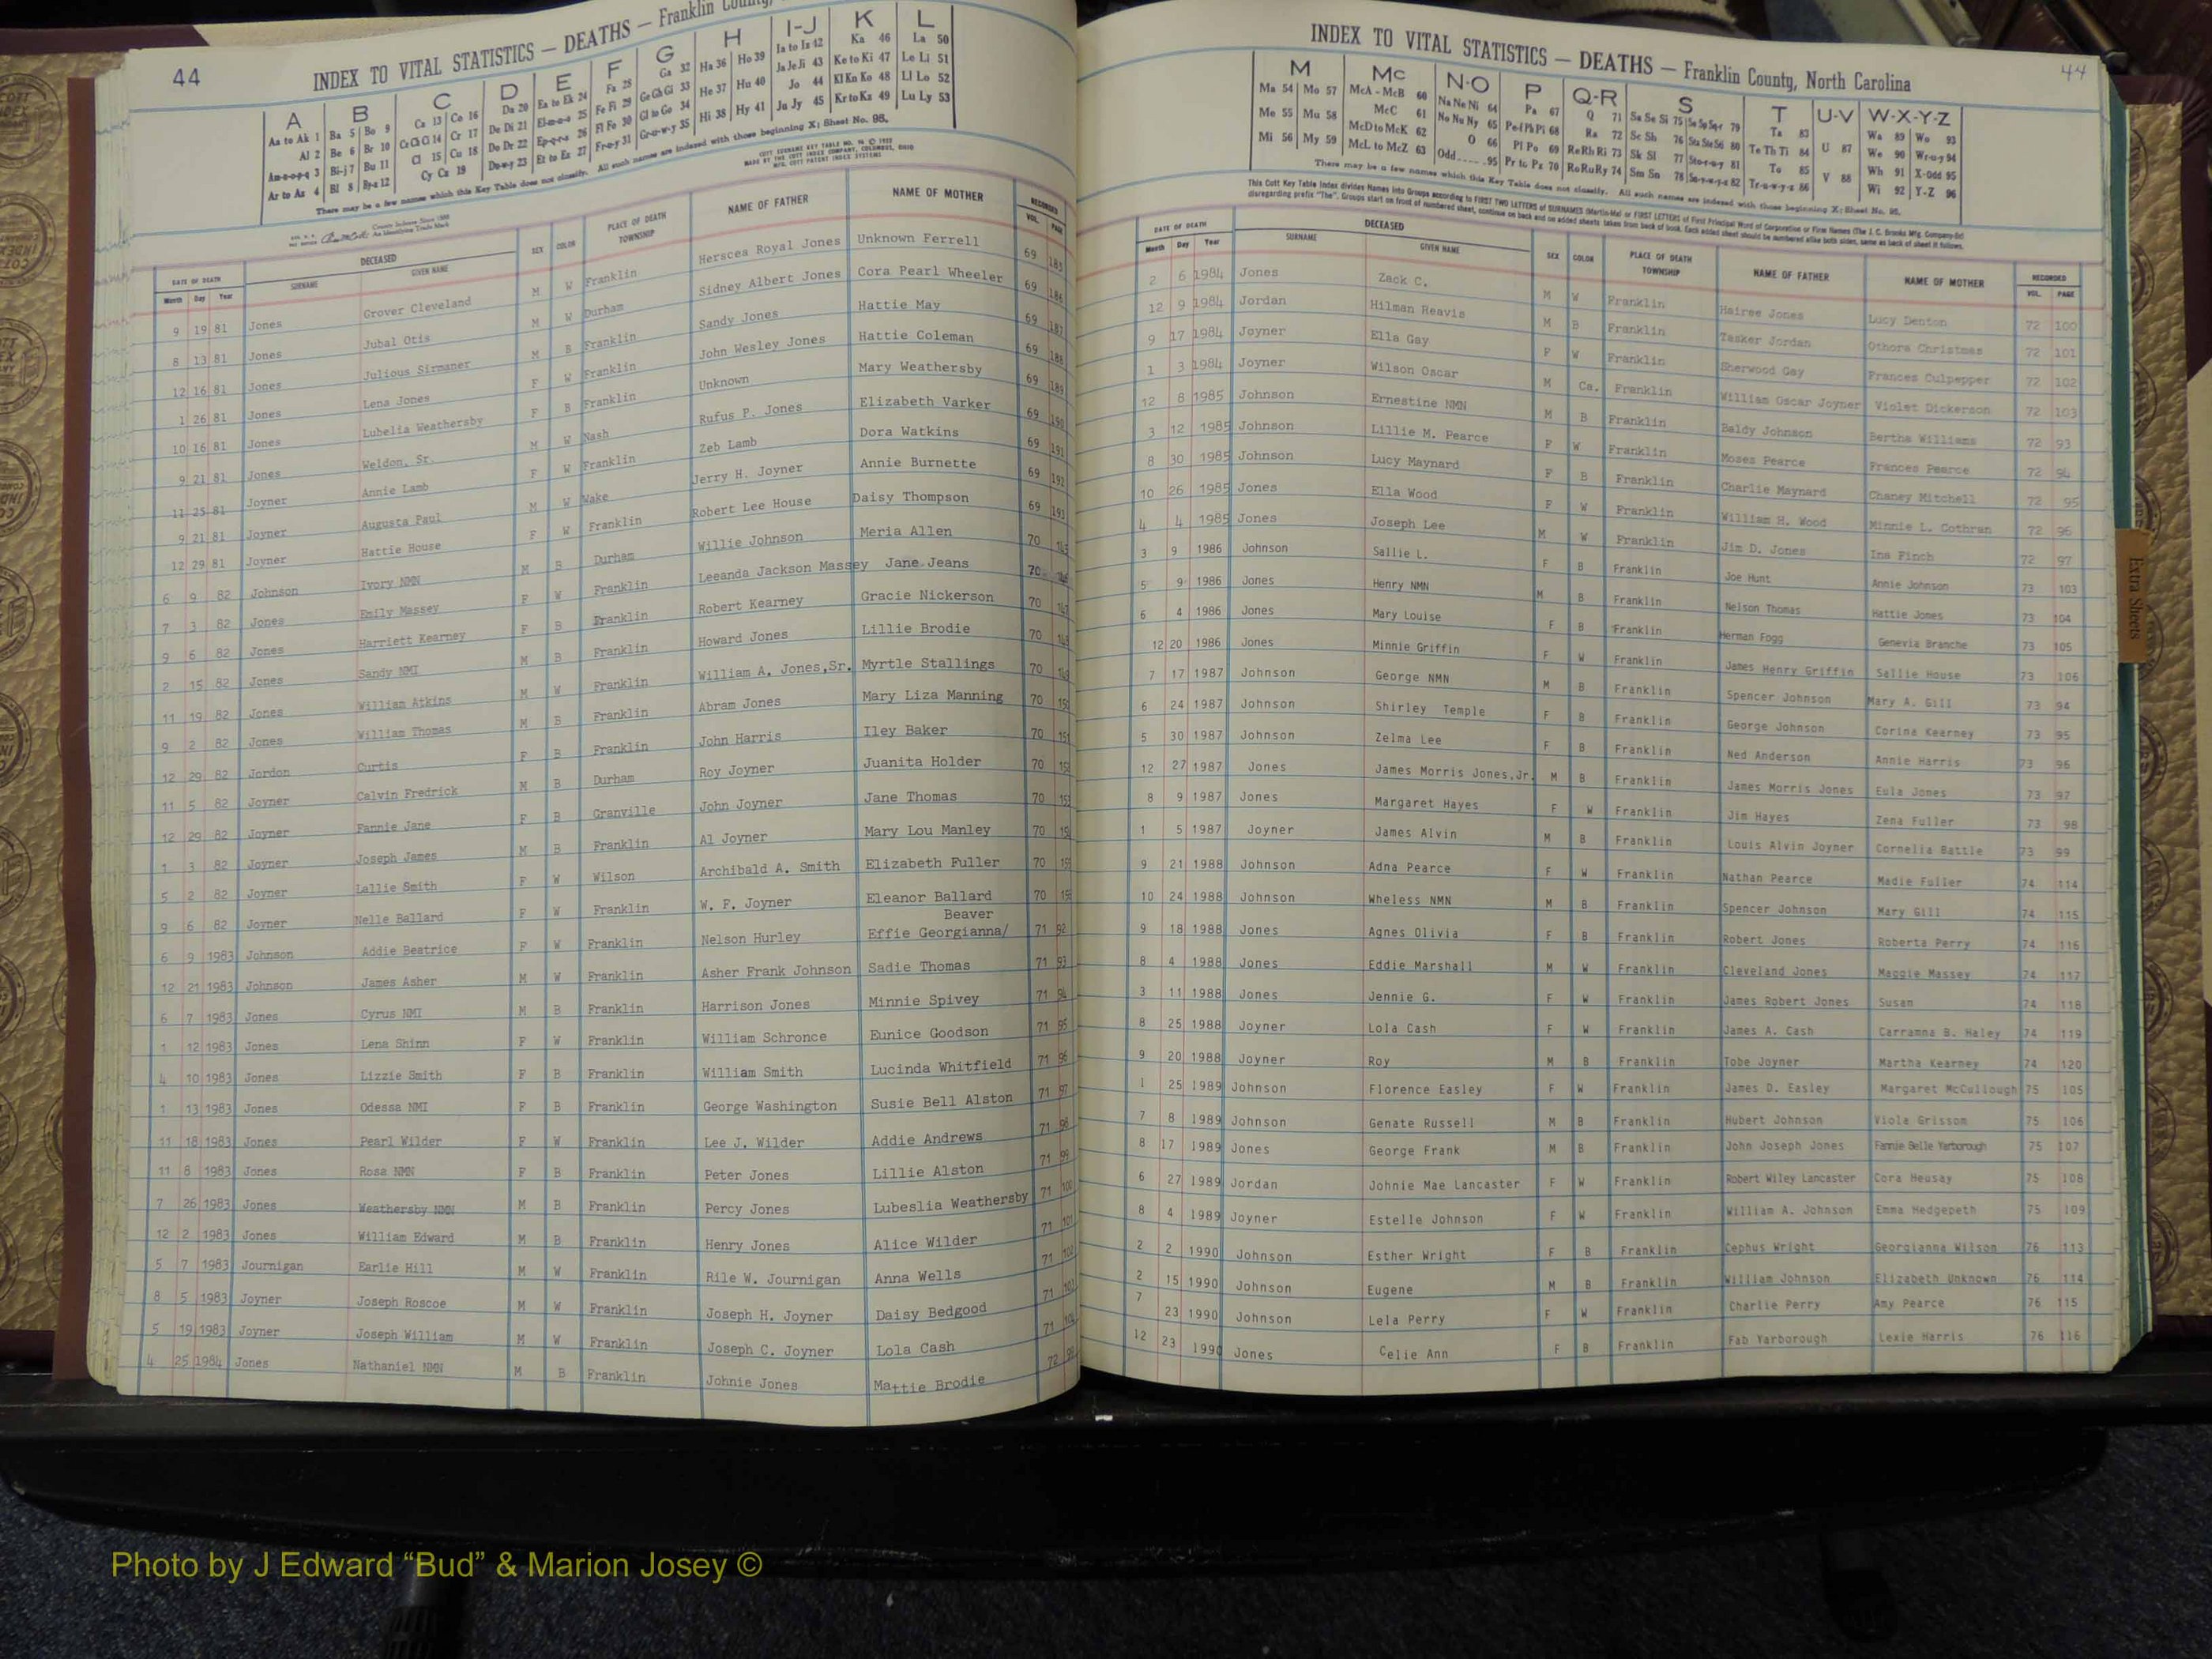 44
INDEX TO VITAL STATISTICS — DEATHS — Franklin County,
A B C D E F G H I-J K L
Aa to Ak 1 Ba 5 Bo 9 Ca 13 Co 16 Da 20 Ea to Ek 24 Fa 28 Ga 32 Ha 36 Ho 39 Ia to Iz 42 Ka 46 La 50
Al 2 Be 6 Br 10 Ce Ch Ci 14 Cr 17 De Di 21 El-m-n-o 25 Fe Fi 29 Ge Gh Gi 33 He 37 Hu 40 Ja Je Ji 43 Ke to Ki 47 Le Li 51
Am-n-o-p-q 3 Bi-j 7 Bu 11 Cl 15 Cu 18 Do Dr 22 Ep-q-r-s 26 Fl Fo 30 Gl to Go 34 Hi 38 Hy 41 Jo 44 Kl Kn Ko 48 Ll Lo 52
Ar to Az 4 Bl 8 By-z 12 Cy Cz 19 Du-w-y 23 Et to Ez 27 Fr-u-y 31 Gr-u-w-y 35 Ju Jy 45 Kr to Kz 49 Lu Ly 53
There may be a few names which this Key Table does not classify. All such names are indexed with those beginning X; Sheet No. 98.
DATE OF DEATH DECEASED SEX COLOR PLACE OF DEATH TOWNSHIP NAME OF FATHER NAME OF MOTHER RECORDED
Month Day Year SURNAME GIVEN NAME VOL. PAGE
9 19 81 Jones Grover Cleveland M W Franklin Herscea Royal Jones Unknown Ferrell 69 185
8 13 81 Jones Jubal Otis M W Durham Sidney Albert Jones Cora Pearl Wheeler 69 186
12 16 81 Jones Julious Sirmaner M B Franklin Sandy Jones Hattie May 69 187
1 26 81 Jones Lena Jones F W Franklin John Wesley Jones Hattie Coleman 69 188
10 16 81 Jones Lubelia Weathersby F B Franklin Unknown Mary Weathersby 69 189
9 21 81 Jones Weldon, Sr. M W Nash Rufus P. Jones Elizabeth Varker 69 190
11 25 81 Joyner Annie Lamb F W Franklin Zeb Lamb Dora Watkins 69 191
9 21 81 Joyner Augusta Paul M W Wake Jerry H. Joyner Annie Burnette 69 192
12 29 81 Joyner Hattie House F W Franklin Robert Lee House Daisy Thompson 69 193
6 9 82 Johnson Ivory NMN M B Durham Willie Johnson Meria Allen 70
7 3 82 Jones Emily Massey F W Franklin Leeanda Jackson Massey Jane Jeans 70
9 6 82 Jones Harriett Kearney F B Franklin Robert Kearney Gracie Nickerson 70
2 15 82 Jones Sandy NMI M B Franklin Howard Jones Lillie Brodie 70
11 19 82 Jones William Atkins M W Franklin William A. Jones,Sr. Myrtle Stallings 70
9 2 82 Jones William Thomas M B Franklin Abram Jones Mary Liza Manning 70
12 29 82 Jordon Curtis F B Franklin John Harris Iley Baker 70
11 5 82 Joyner Calvin Fredrick M B Durham Roy Joyner Juanita Holder 70
12 29 82 Joyner Fannie Jane F B Granville John Joyner Jane Thomas 70
1 3 82 Joyner Joseph James M B Franklin Al Joyner Mary Lou Manley 70
5 2 82 Joyner Lallie Smith F W Wilson Archibald A. Smith Elizabeth Fuller 70
9 6 82 Joyner Nelle Ballard F W Franklin W. F. Joyner Eleanor Ballard 70
Beaver
6 9 1983 Johnson Addie Beatrice F W Franklin Nelson Hurley Effie Georgianna/ 71 92
12 21 1983 Johnson James Asher M W Franklin Asher Frank Johnson Sadie Thomas 71 93
6 7 1983 Jones Cyrus NMI M B Franklin Harrison Jones Minnie Spivey 71 94
1 12 1983 Jones Lena Shinn F W Franklin William Schronce Eunice Goodson 71 95
4 10 1983 Jones Lizzie Smith F B Franklin William Smith Lucinda Whitfield 71 96
1 13 1983 Jones Odessa NMI F B Franklin George Washington Susie Bell Alston 71 97
11 18 1983 Jones Pearl Wilder F W Franklin Lee J. Wilder Addie Andrews 71 98
11 8 1983 Jones Rosa NMN F B Franklin Peter Jones Lillie Alston 71 99
7 26 1983 Jones Weathersby NMN M B Franklin Percy Jones Lubeslia Weathersby 71 100
12 2 1983 Jones William Edward M B Franklin Henry Jones Alice Wilder 71 101
5 7 1983 Journigan Earlie Hill M W Franklin Rile W. Journigan Anna Wells 71 102
8 5 1983 Joyner Joseph Roscoe M W Franklin Joseph H. Joyner Daisy Bedgood 71 103
5 19 1983 Joyner Joseph William M W Franklin Joseph C. Joyner Lola Cash 71 104
4 25 1984 Jones Nathaniel NMN M B Franklin Johnie Jones Mattie Brodie 72
INDEX TO VITAL STATISTICS — DEATHS — Franklin County, North Carolina 44
M Mc N-O P Q-R S T U-V W-X-Y-Z
Ma 54 Mo 57 McA - McB 60 Na Ne Ni 64 Pa 67 Q 71 Sa Se Si 75 So Sp Sq-r 79 Ta 83 U 87 Wa 89 Wo 93
Me 55 Mu 58 McC 61 No Nu Ny 65 Pe-f Ph Pi 68 Ra 72 Sc Sh 76 Sta Ste Si 80 Te Th Ti 84 V 88 We 90 Wr-u-y 94
Mi 56 My 59 McD to McK 62 O 66 Pl Po 69 Re Rh Ri 73 Sk Sl 77 Sto-r-u-y 81 To 85 Wh 91 X-Odd 95
McL to McZ 63 Odd 95 Pr to Pz 70 Ro Ru Ry 74 Sm Sn 78 Su-v-w-y-z 82 Tr-u-w-y-z 86 Wi 92 Y-Z 96
There may be a few names which this Key Table does not classify. All such names are indexed with those beginning X; Sheet No. 98.
This Cott Key Table Index divides Names into Groups according to FIRST TWO LETTERS of SURNAMES (Martin-Ma) or FIRST LETTERS of First Principal Word of Corporation or Firm Names (The J. C. Brooks Mfg. Company-Br)
disregarding prefix "The". Groups start on front of numbered sheet, continue on back and on added sheets taken from back of book. Each added sheet should be numbered alike both sides, same as back of sheet it follows.
DATE OF DEATH DECEASED SEX COLOR PLACE OF DEATH TOWNSHIP NAME OF FATHER NAME OF MOTHER RECORDED
Month Day Year SURNAME GIVEN NAME VOL. PAGE
2 6 1984 Jones Zack C. M W Franklin Hairee Jones Lucy Denton 72 100
12 9 1984 Jordan Hilman Reavis M B Franklin Tasker Jordan Othora Christmas 72 101
9 17 1984 Joyner Ella Gay F W Franklin Sherwood Gay Frances Culpepper 72 102
1 3 1984 Joyner Wilson Oscar M Ca. Franklin William Oscar Joyner Violet Dickerson 72 103
12 8 1985 Johnson Ernestine NMN M B Franklin Baldy Johnson Bertha Williams 72 93
3 12 1985 Johnson Lillie M. Pearce F W Franklin Moses Pearce Frances Pearce 72 94
8 30 1985 Johnson Lucy Maynard F B Franklin Charlie Maynard Chaney Mitchell 72 95
10 26 1985 Jones Ella Wood F W Franklin William H. Wood Minnie L. Cothran 72 96
4 4 1985 Jones Joseph Lee M W Franklin Jim D. Jones Ina Finch 72 97
3 9 1986 Johnson Sallie L. F B Franklin Joe Hunt Annie Johnson 73 103
5 9 1986 Jones Henry NMN M B Franklin Nelson Thomas Hattie Jones 73 104
6 4 1986 Jones Mary Louise F B Franklin Herman Fogg Genevia Branche 73 105
12 20 1986 Jones Minnie Griffin F W Franklin James Henry Griffin Sallie House 73 106
7 17 1987 Johnson George NMN M B Franklin Spencer Johnson Mary A. Gill 73 94
6 24 1987 Johnson Shirley Temple F B Franklin George Johnson Corina Kearney 73 95
5 30 1987 Johnson Zelma Lee F B Franklin Ned Anderson Annie Harris 73 96
12 27 1987 Jones James Morris Jones,Jr. M B Franklin James Morris Jones Eula Jones 73 97
8 9 1987 Jones Margaret Hayes F W Franklin Jim Hayes Zena Fuller 73 98
1 5 1987 Joyner James Alvin M B Franklin Louis Alvin Joyner Cornelia Battle 73 99
9 21 1988 Johnson Adna Pearce F W Franklin Nathan Pearce Madie Fuller 74 114
10 24 1988 Johnson Wheless NMN M B Franklin Spencer Johnson Mary Gill 74 115
9 18 1988 Jones Agnes Olivia F B Franklin Robert Jones Roberta Perry 74 116
8 4 1988 Jones Eddie Marshall M W Franklin Cleveland Jones Maggie Massey 74 117
3 11 1988 Jones Jennie G. F W Franklin James Robert Jones Susan 74 118
8 25 1988 Joyner Lola Cash F W Franklin James A. Cash Carramna B. Haley 74 119
9 20 1988 Joyner Roy M B Franklin Tobe Joyner Martha Kearney 74 120
1 25 1989 Johnson Florence Easley F W Franklin James D. Easley Margaret McCullough 75 105
7 8 1989 Johnson Genate Russell M B Franklin Hubert Johnson Viola Grissom 75 106
8 17 1989 Jones George Frank M B Franklin John Joseph Jones Fannie Belle Yarborough 75 107
6 27 1989 Jordan Johnie Mae Lancaster F W Franklin Robert Wiley Lancaster Cora Heusay 75 108
8 4 1989 Joyner Estelle Johnson F W Franklin William A. Johnson Emma Hedgepeth 75 109
2 2 1990 Johnson Esther Wright F B Franklin Cephus Wright Georgianna Wilson 76 113
2 15 1990 Johnson Eugene M B Franklin William Johnson Elizabeth Unknown 76 114
7 23 1990 Johnson Lela Perry F W Franklin Charlie Perry Amy Pearce 76 115
12 23 1990 Jones Celie Ann F B Franklin Fab Yarborough Lexie Harris 76 116
Extra Sheets
Photo by J Edward “Bud” & Marion Josey ©